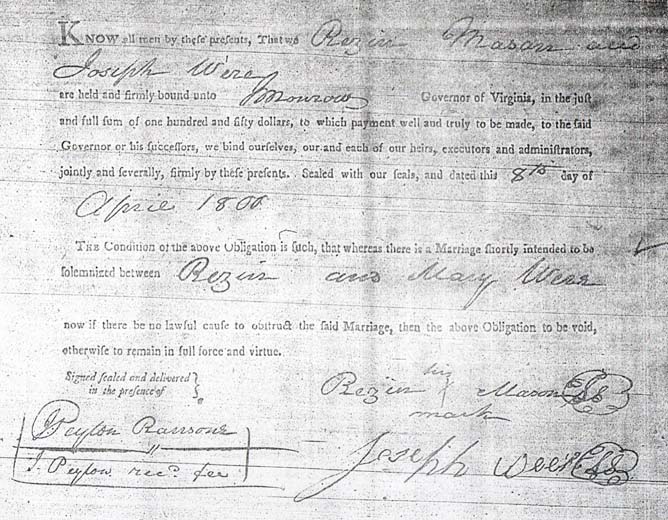 KNOW all men by these presents, That we Rezin Mason and
Joseph Were
are held and firmly bound unto J Monrow Governor of Virginia, in the just
and full sum of one hundred and fifty dollars, to which payment well and truly to be made, to the said
Governor or his successors, we bind ourselves, our and each of our heirs, executors and administrators,
jointly and severally, firmly by these presents. Sealed with our seals, and dated this 8th day of
April 1800
THE Condition of the above Obligation is such, that whereas there is a Marriage shortly intended to be
solemnized between Rezin and Mary Were
now if there be no lawful cause to obstruct the said Marriage, then the above Obligation to be void,
otherwise to remain in full force and virtue.
Signed sealed and delivered
in the presence of
his
Rezin X Mason
mark
Peyton Ransone
J. Peyton recd. fee
Joseph Were